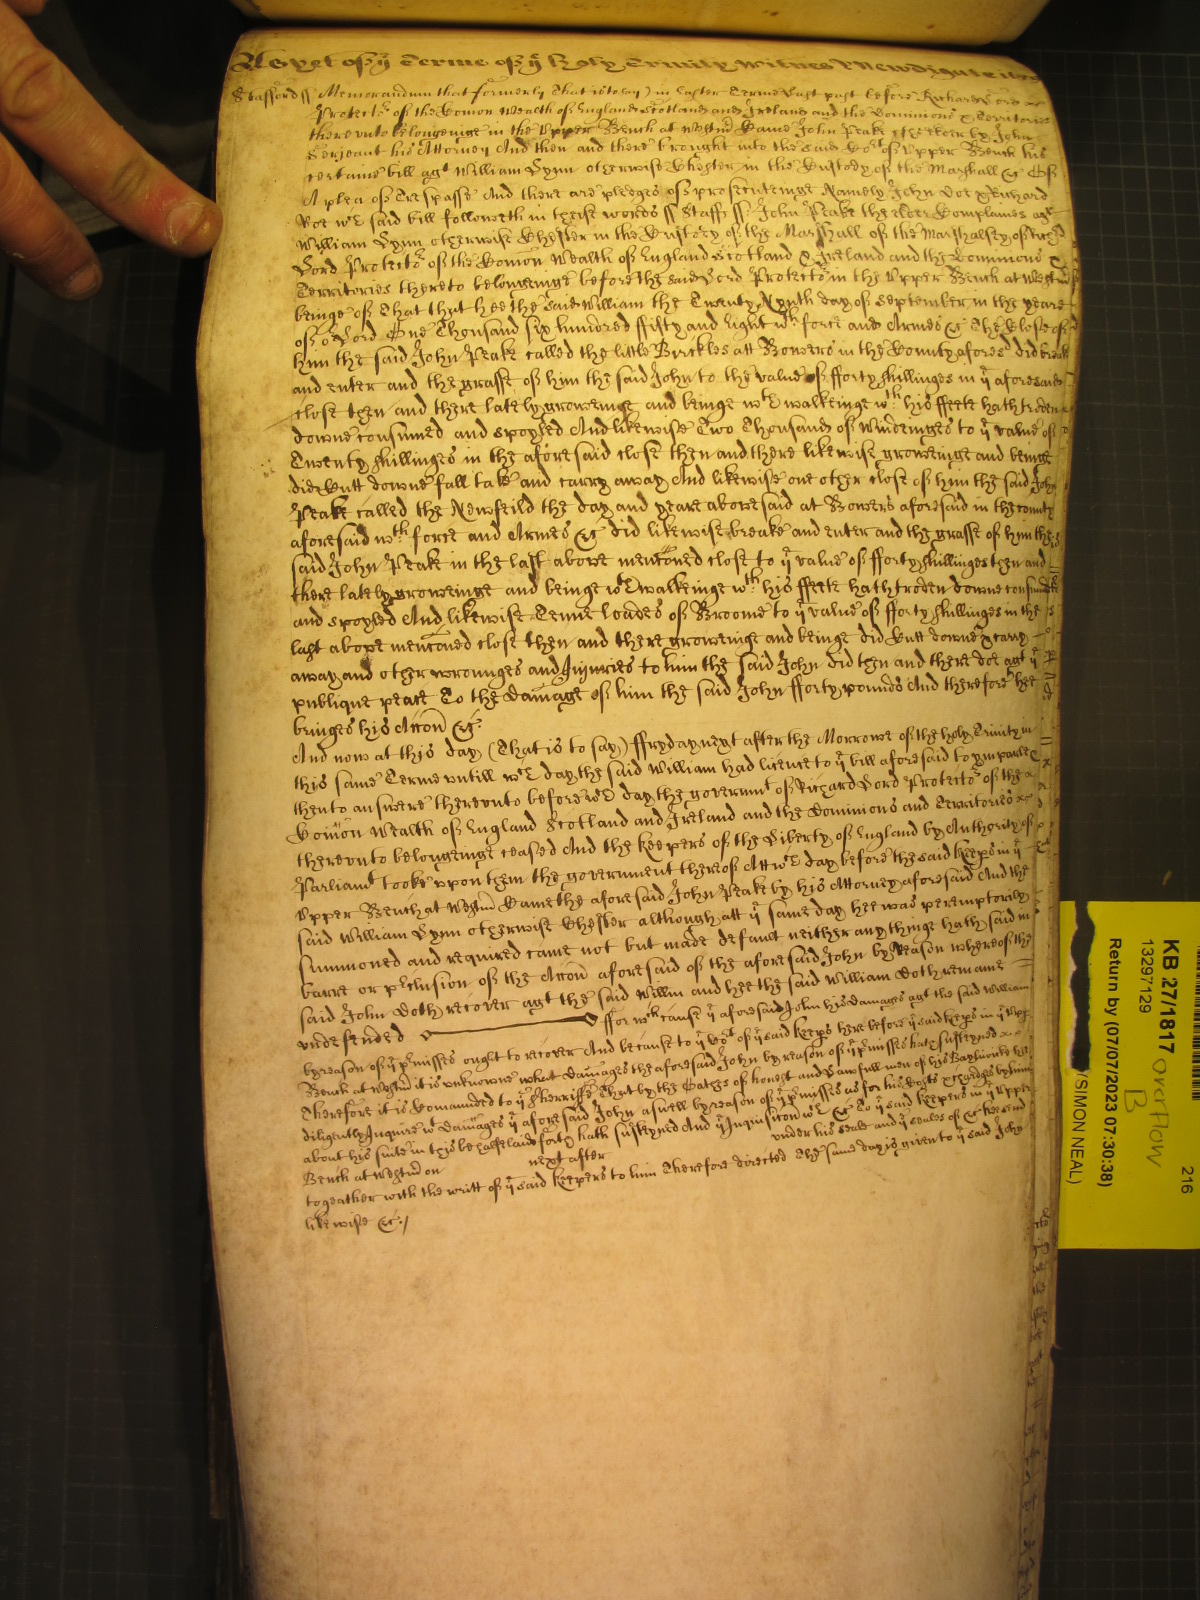 As yet of ye Terme of ye holy Trinity Witnes R Newdigate
Stafford ss Memorandum that formerly that is to say in Easter Terme Last past before Richard Lord
Protector of the Comon Wealth of England Scotland and Ireland and the Dominions & Territories
therevnto belonginge in the Vpper Bench at Westmr Came John Peake the elder by John
Serjeant his Attorney And then and there brought into the said Cort of Vpper Bench his
certaine bill agt William Lynn otherwise Chester in the Custody of the Marshall &c Of
A plea of Trespasse And there are pledges of prosecutinge Namely John Doe & Richard
Roe wch said bill followeth in these words ss Staff ss John Peake the elder Complaines agt
William Lynn otherwise Chester in the Custody of the Marshall of the Marshalsey of the
Lord Protector of the Comon Wealth of England Scotland & Ireland and the Dominions &
Territories thereto belonginge before the said Lord Protector in the Vpper Bench at Westmr
beinge of That that hee the said William the Twenty Nynth day of September in the yeare
of or Lord One Thousand six hundred fifty and eight wth force and Armes &c The Close of
him the said John Peake called the little Birckles att Bowers in the County aforesd did break
and enter and the grasse of him the said John to the value of fforty shillinges in ye aforesaid
close then and there lately growinge and beinge wth walkeinge wth his ffeete hath troden
downe consumed and spoyled And likewise Two Thousand of Winderinges to ye value of
Twenty shillinges in the aforesaid close then and there likewise growinge and beinge
did Cutt downe fall take and carry away And likewise one other close of him the said John
Peake called the Newfeild the day and yeare abovesaid at Bowers aforesaid in the county
aforesaid wth force and Armes &c did likewise breake and enter and the grasse of him the
said John Peake in the last above menconed close to ye value of fforty shillinges then and
there lately growinge and beinge wth walkeinge wth his ffeete hath troden downe consumed
and spoyled And likewise Tenne loades of Broome to ye value of fforty shillinges in the
last above menconed close then and there growinge and beinge did Cutt downe & carry
away and other wrounges and Injuries to him the said John did then and there doe agt ye
publique peace To the damage of him the said John fforty pounds And therefore hee
bringes his Accon &c
And now at this day (That is to say) ffryday next after the Morrowe of the holy Trinity in
this same Terme vntill wch day the said William had licence to ye bill aforesaid to ymparle &
then to answere therevnto before wch day the governmt of Richard Lord Protector of the
Comon Wealth of England Scotland and Ireland and the Dominions and Territories
therevnto belonginge ceased And the Keepers of the Liberty of England by Authority of
Parliamt tooke vpon them the government thereof Att wch day before the said Keeps in ye
Vpper Bench at Westmr Came the aforesaid John Peake by his Attorney aforesaid And the
said William Lynn otherwise Chester although att ye same day hee was peremptorily
summoned and required came not but made default neither any thinge hath said in
barre or preclusion of the Accon aforesaid of the aforesaid John by Reason whereof the
said John Doth recover agt the said Willm and hee the said William Doth remaine
vndefended ffor wch cause ye aforesaid John his Damages agt the said William
by reason of ye pmisses ought to recover And because to ye Cort of ye said Keeps here before ye said Keeps in ye Vpp
Bench at Westmr it is vnknowne what Damages the aforesaid John by reason of ye pmisses hath susteyned
Therefore it is Comanded to ye Sherriffe That by the Oathes of honest and Lawfull men of his Bayliwicke hee
diligently Inquire wt Damages ye aforesaid John aswell by reason of ye pmisses as for his Costs & charges by him
about his suite in this behalfe laide forth hath susteyned And ye Inquisicon wch &c To ye said Keepers in ye Vpper
Bench at Westmr on next after under his seale and ye seales of &c hee send
together with the writt of ye said Keepers to him Therefore directed The same day is given to ye said John
likewise &c
KB 27/1817
216
13297129
overflow
B
Return by (07/07/2023 07:30:38)
(SIMON NEAL)